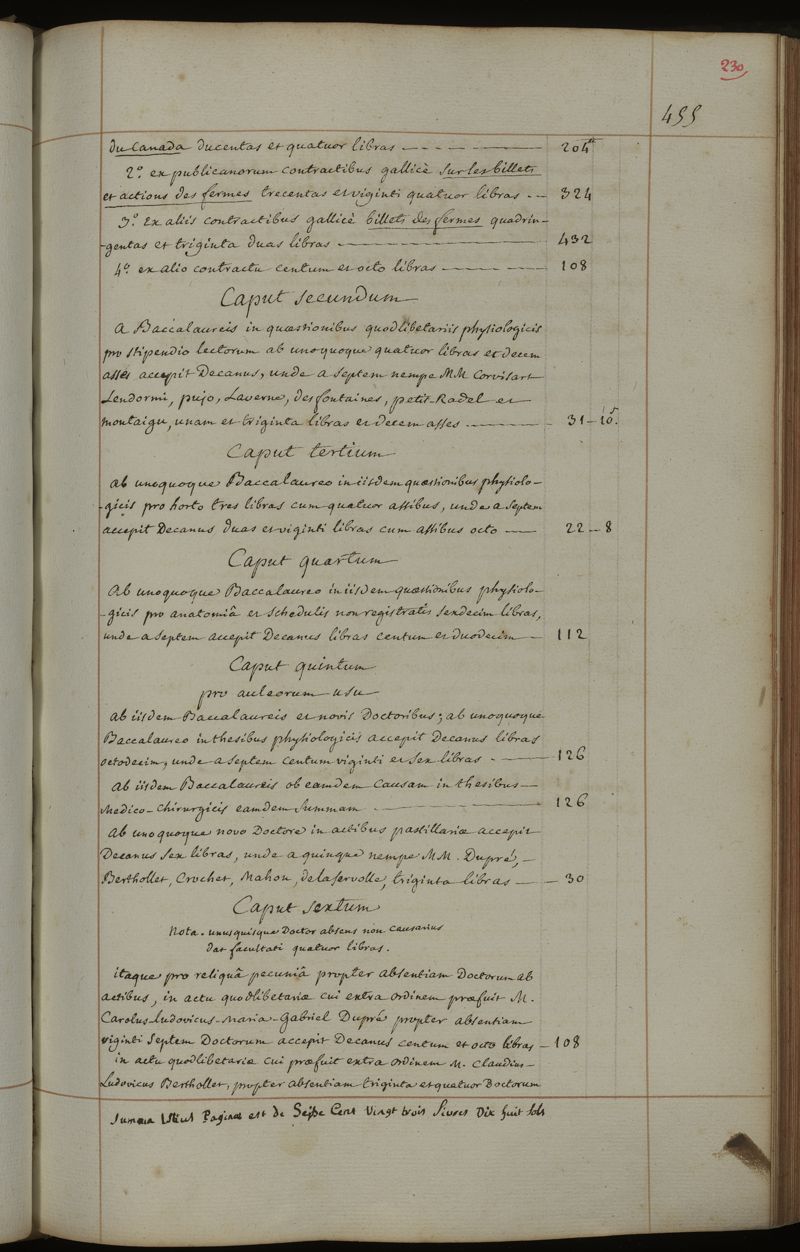 230
455
du Canada ducentas et quatuor libras — 204 ₶
2.º ex publicanorum contractibus gallicè sur les billets
et actions des fermes trecentas et viginti quatuor libras -- 324
3.º Ex aliis contractibus gallicè billets des fermes quadrin-
-gentas et triginta duas libras — 432
4.º ex alio contractu centum et octo libras — 108
Caput secundum
a Baccalaureis in quæstionibus quodlibetariis physiologicis
pro stipendio lectorum ab unoquoque quatuor libras et decem
asses accepit Decanus, unde a septem nempe MM Corvisart
Lendormi, pujo, Laverne, des fontaines, petit-Radel et
montaigu, unam et triginta libras et decem asses — 31 — 10 s.
Caput tertium
ab unoquoque Baccalaureo in iisdem quæstionibus physiolo-
-gicis pro horto tres libras cum quatuor assibus, unde a septem
accepit Decanus duas et viginti libras cum assibus octo — 22 — 8
Caput quartum
Ab unoquoque Baccalaureo in iisdem quæstionibus physiolo-
-gicis pro anatomiâ et schedulis non registratis sexdecim libras,
unde a septem accepit Decanus libras centum et duodecim — 112
Caput quintum
pro auleorum usu
ab iisdem Baccalaureis et novis Doctoribus; ab unoquoque
Baccalaureo in thesibus physiologicis accepit Decanus libras
octodecim, unde a septem centum viginti et sex libras - — 126
ab iisdem Baccalaureis ob eamdem causam in thesibus
Medico-Chirurgicis eamdem summam — 126
ab unoquoque novo Doctore in actibus pastillariæ accepit
Decanus sex libras, unde a quinque nempe MM. Dupré, —
Berthollet, Crochet, Mahon, delaservolle, triginta libras — 30
Caput sextum
Nota. unusquisque Doctor absens non causarius
dat facultati quatuor libras.
itaque pro reliquâ pecuniâ propter absentiam Doctorum ab
actibus, in actu quodlibetariæ cui extra ordinem præfuit M.
Carolus-Ludovicus-Maria-Gabriel Dupré propter absentiam
viginti septem Doctorum accepit Decanus centum et octo libras — 108
in actu quodlibetariæ cui præfuit extra ordinem M. Claudius-
Ludovicus Berthollet, propter absentiam triginta et quatuor Doctorum
Summa istius Paginæ est de Seise Cent Vingt trois Livres Dix huit sols